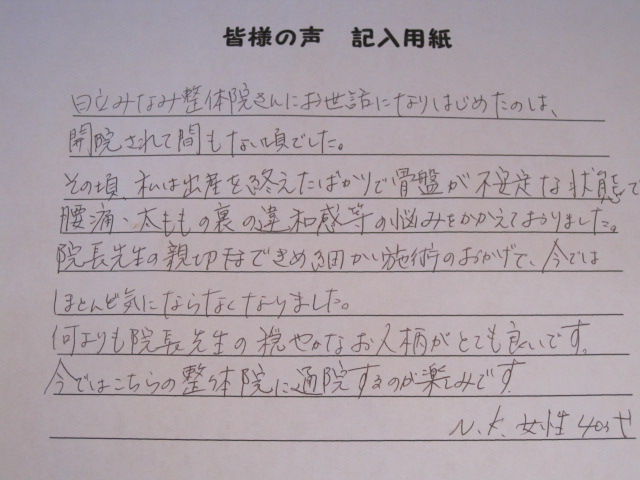 皆様の声 記入用紙
日立みなみ整体院さんにお世話になりはじめたのは、
開院されて間もない頃でした。
その頃、私は出産を終えたばかりで骨盤が不安定な状態で
腰痛・太ももの裏の違和感等の悩みをかかえておりました。
院長先生の親切できめ細かい施術のおかげで、今では
ほとんど気にならなくなりました。
何よりも院長先生の穏やかなお人柄がとても良いです。
今ではこちらの整体院に通院するのが楽しみです。
N.K. 女性 40代